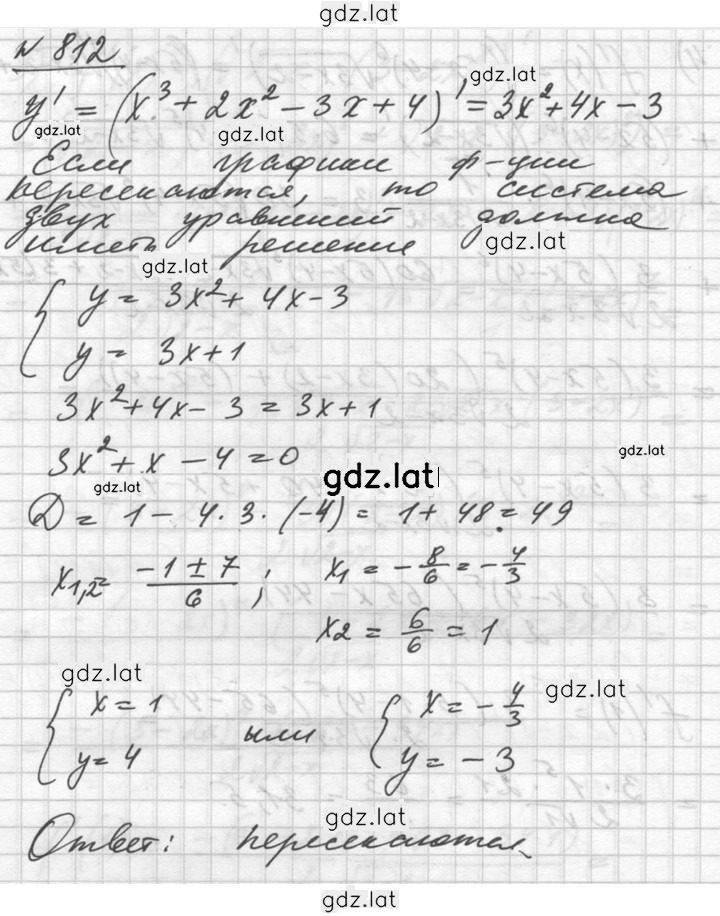 gdz.lat
№ 812
gdz.lat
y' = (x³ + 2x² − 3x + 4)' = 3x² + 4x − 3
gdz.lat gdz.lat
Если графики ф-ции
пересекаются, то система
двух уравнений должна
gdz.lat
иметь решение
gdz.lat
{ y = 3x² + 4x − 3
y = 3x + 1
3x² + 4x − 3 = 3x + 1
3x² + x − 4 = 0
gdz.lat
gdz.lat
gdz.lat
D = 1 − 4 · 3 · (−4) = 1 + 48 = 49
x₁,₂ = (−1 ± 7)/6 ; x₁ = −8/6 = −4/3
x₂ = 6/6 = 1
gdz.lat gdz.lat
{ x = 1 { x = −4/3
y = 4 или y = −3
gdz.lat
Ответ: пересекаются.
gdz.lat